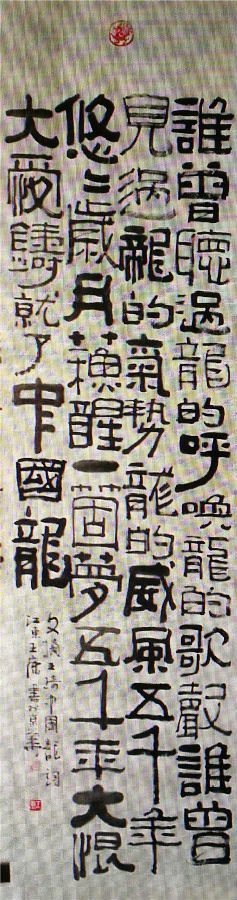 誰曾聽過龍的呼喚龍的歌聲誰曾
見過龍的氣勢龍的威風五千年
悠〻歲月蘓醒一箇夢五千年大
大愛鑄就了中國龍
中國龍詞
江東王書於京華